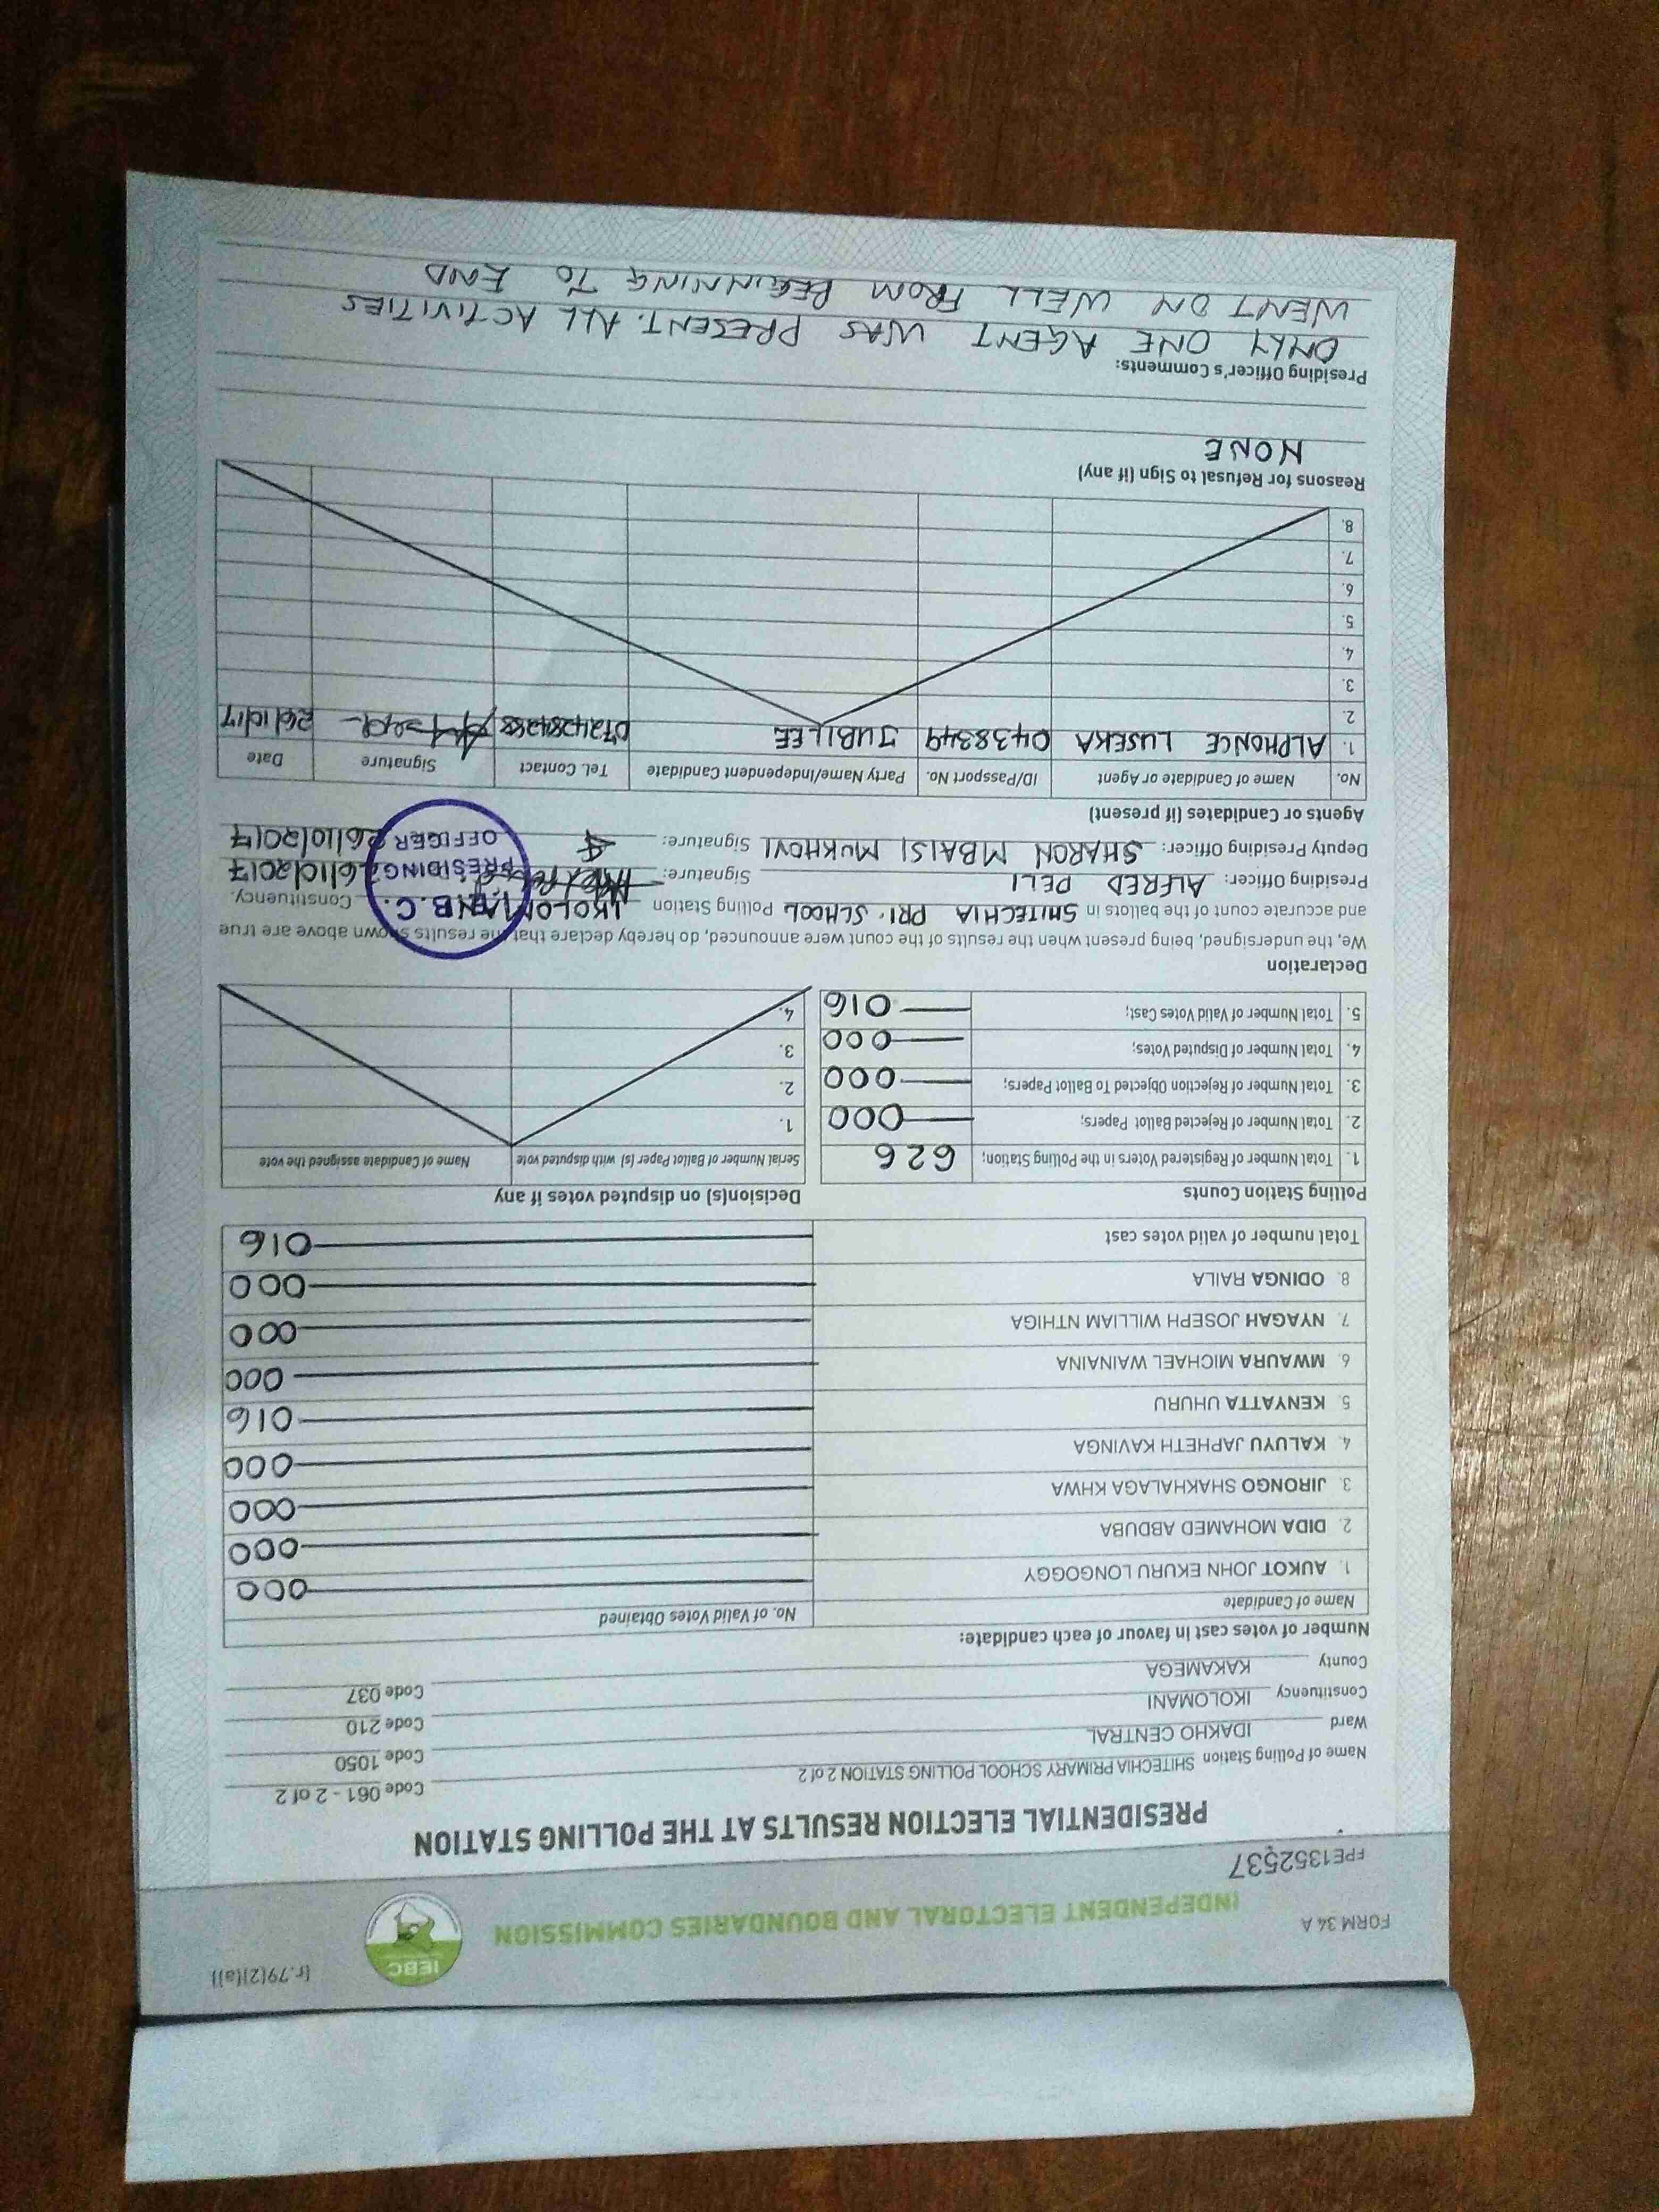 [r.79(2)(a)]
IEBC
FORM 34 A
INDEPENDENT ELECTORAL AND BOUNDARIES COMMISSION
FPE1352537
PRESIDENTIAL ELECTION RESULTS AT THE POLLING STATION
Name of Polling Station SHITECHIA PRIMARY SCHOOL POLLING STATION 2 of 2 Code 061 - 2 of 2
Ward IDAKHO CENTRAL Code 1050
Constituency IKOLOMANI Code 210
County KAKAMEGA Code 037
Number of votes cast in favour of each candidate:
Name of Candidate No. of Valid Votes Obtained
1. AUKOT JOHN EKURU LONGOGGY 000
2. DIDA MOHAMED ABDUBA 000
3. JIRONGO SHAKHALAGA KHWA 000
4. KALUYU JAPHETH KAVINGA 000
5. KENYATTA UHURU 016
6. MWAURA MICHAEL WAINAINA 000
7. NYAGAH JOSEPH WILLIAM NTHIGA 000
8. ODINGA RAILA 000
Total number of valid votes cast 016
Polling Station Counts Decision(s) on disputed votes if any
1. Total Number of Registered Voters in the Polling Station; 626 Serial Number of Ballot Paper (s) with disputed vote Name of Candidate assigned the vote
2. Total Number of Rejected Ballot Papers; 000 1.
3. Total Number of Rejection Objected To Ballot Papers; 000 2.
4. Total Number of Disputed Votes; 000 3.
5. Total Number of Valid Votes Cast; 016 4.
Declaration
We, the undersigned, being present when the results of the count were announced, do hereby declare that the results shown above are true
and accurate count of the ballots in SHITECHIA PRI. SCHOOL Polling Station IKOLOMANI Constituency.
Presiding Officer: ALFRED DELI Signature: 26/10/2017
Deputy Presiding Officer: SHARON MBAISI MUKHOVI Signature: 26/10/2017
B.C.
PRESIDING
OFFICER
Agents or Candidates (if present)
No. Name of Candidate or Agent ID/Passport No. Party Name/Independent Candidate Tel. Contact Signature Date
1. ALPHONCE LUSEKA 0438349 JUBILEE 0724284288 26/10/17
2.
3.
4.
5.
6.
7.
8.
Reasons for Refusal to Sign (if any)
NONE
Presiding Officer's Comments:
ONLY ONE AGENT WAS PRESENT. ALL ACTIVITIES
WENT ON WELL FROM BEGINNING TO END